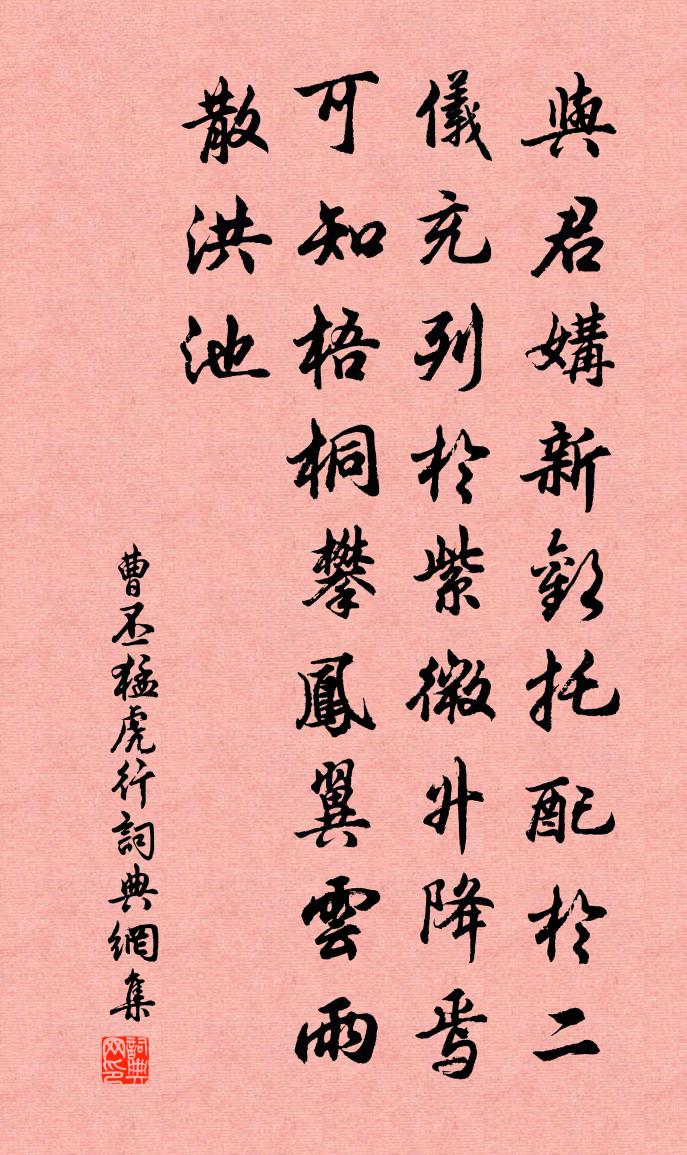 與君媾新歡托配於二
儀充列於紫微升降焉
可知梧桐攀鳳翼雲雨
散洪池
曹丕猛虎行詞典網集
詞典网印